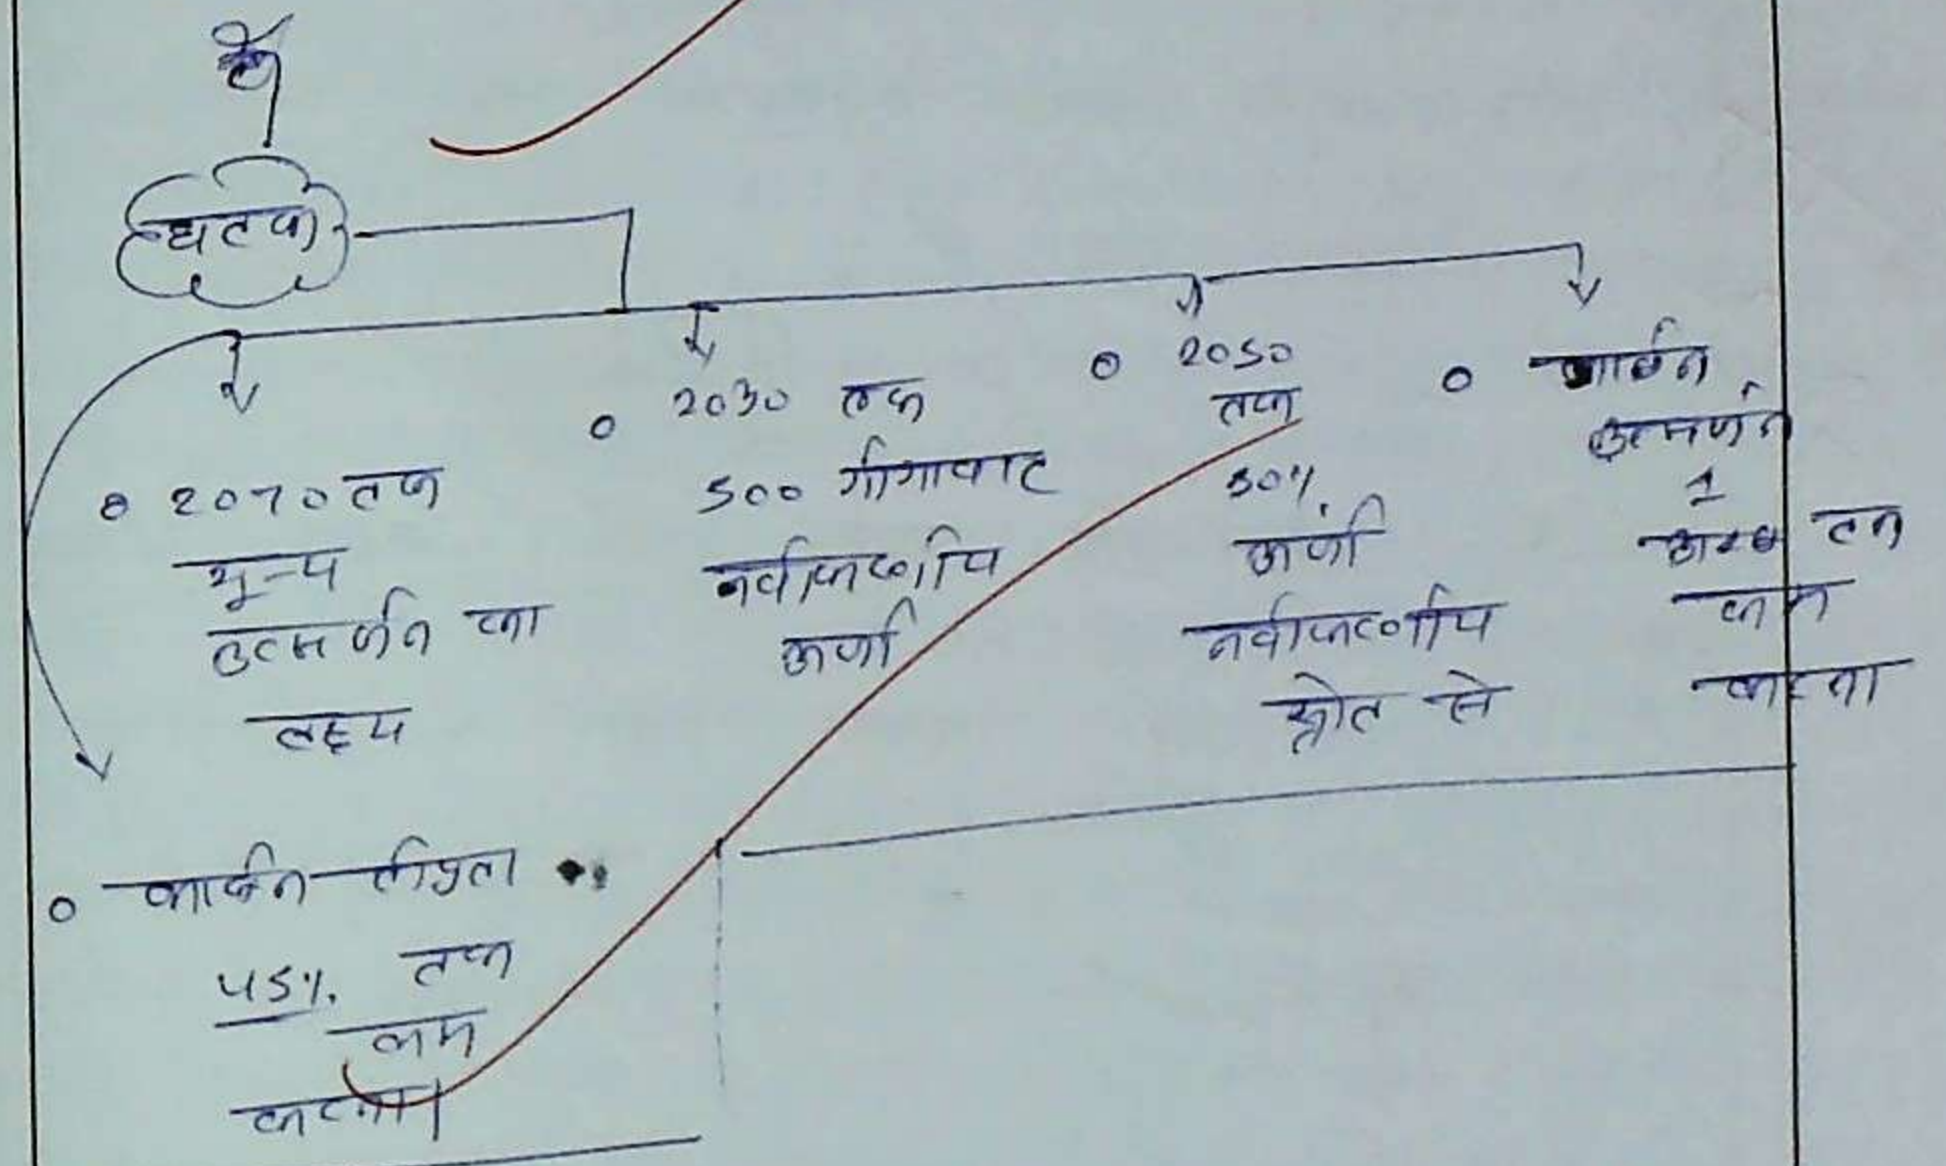 घटक
2070 तक
शून्य
उत्सर्जन का
लक्ष्य
2030 तक
500 गीगावाट
नवीकरणीय
ऊर्जा
2050
तक
50%
ऊर्जा
नवीकरणीय
स्रोत से
कार्बन
उत्सर्जन
1
अरब टन
कम
करना
कार्बन तीव्रता
45% तक
कम
करना।